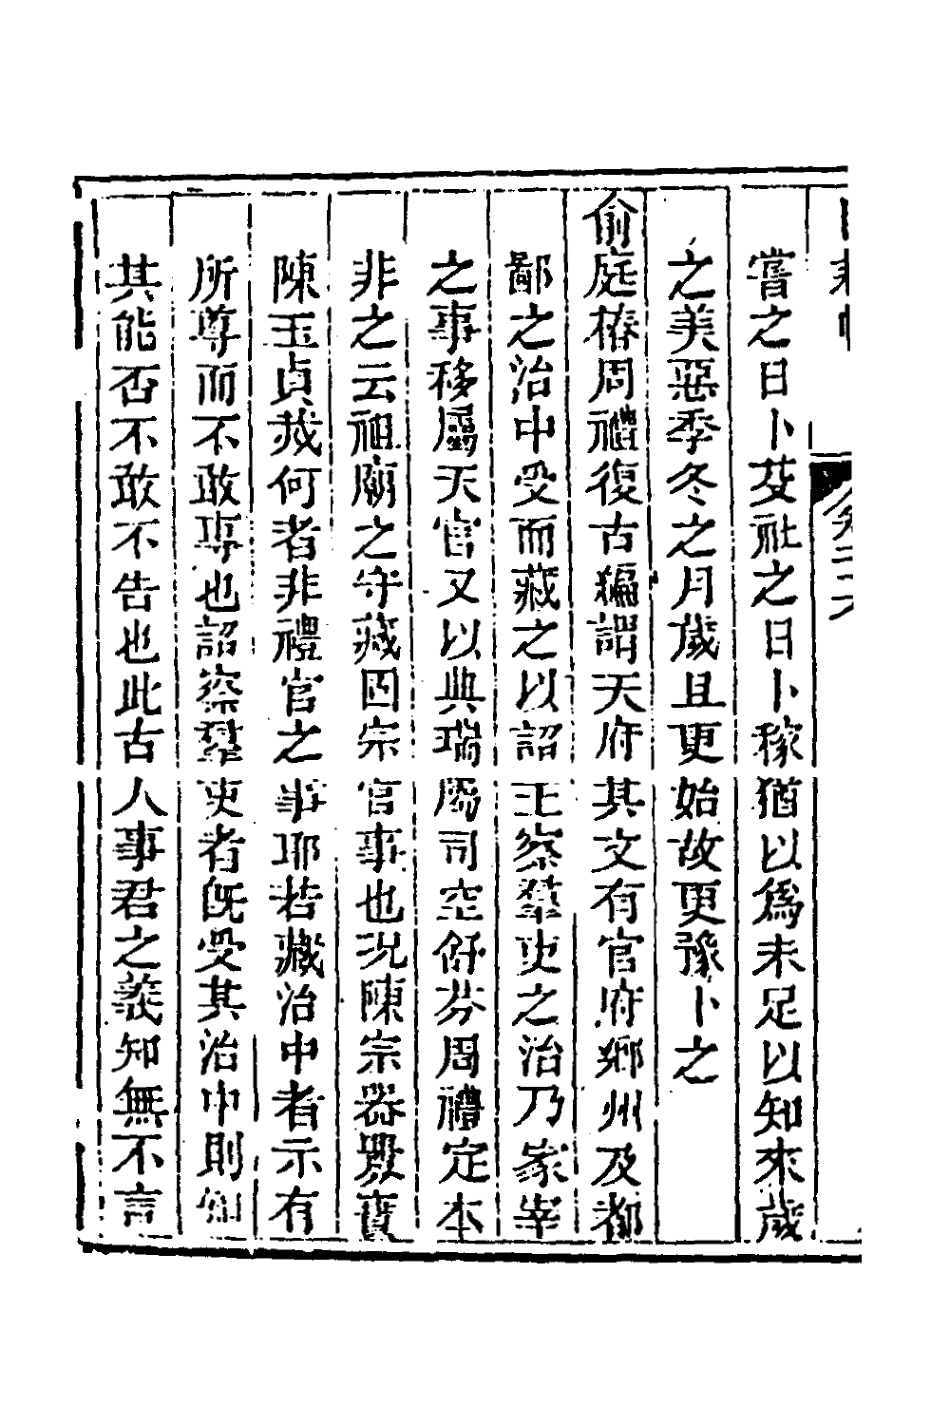 嘗之日卜芟社之日卜稼猶以爲未足以知來歲
之美惡季冬之月歲且更始故更豫卜之
俞庭椿周禮復古編謂天府其文有官府鄉州及都
鄙之治中受而藏之以詔王察羣吏之治乃冢宰
之事移屬天官又以典瑞屬司空舒芬周禮定本
非之云祖廟之守藏固宗官事也况陳宗器設寶
陳玉貞烖何者非禮官之事耶若藏治中者示有
所尊而不敢專也詔察羣吏者旣受其治中則知
其能否不敢不告也此古人事君之義知無不言